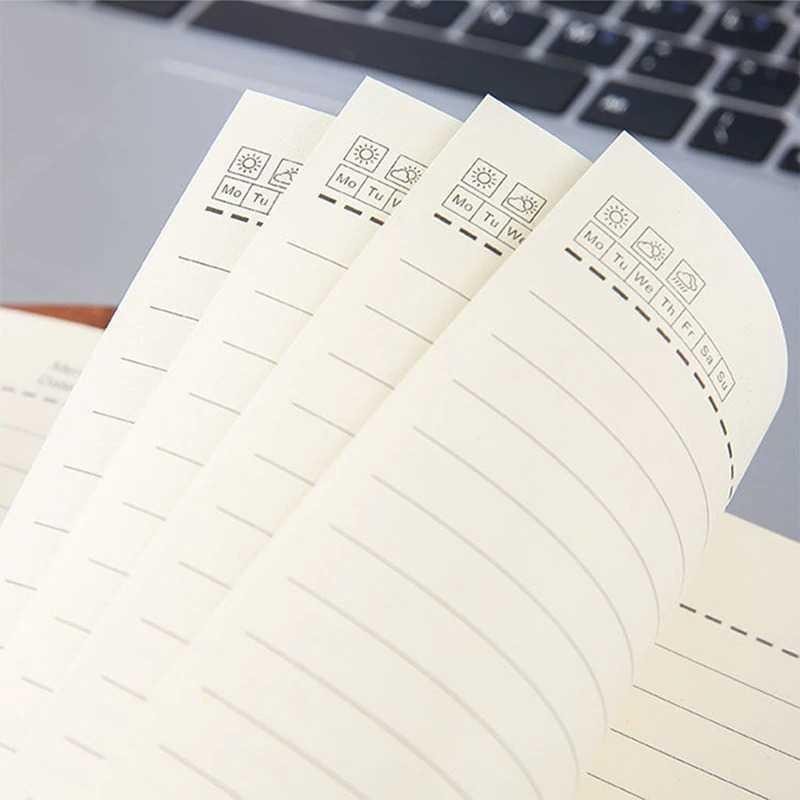 Mo Tu
Mo Tu
Mo Tu We
Mo Tu We Th Fr Sa Su